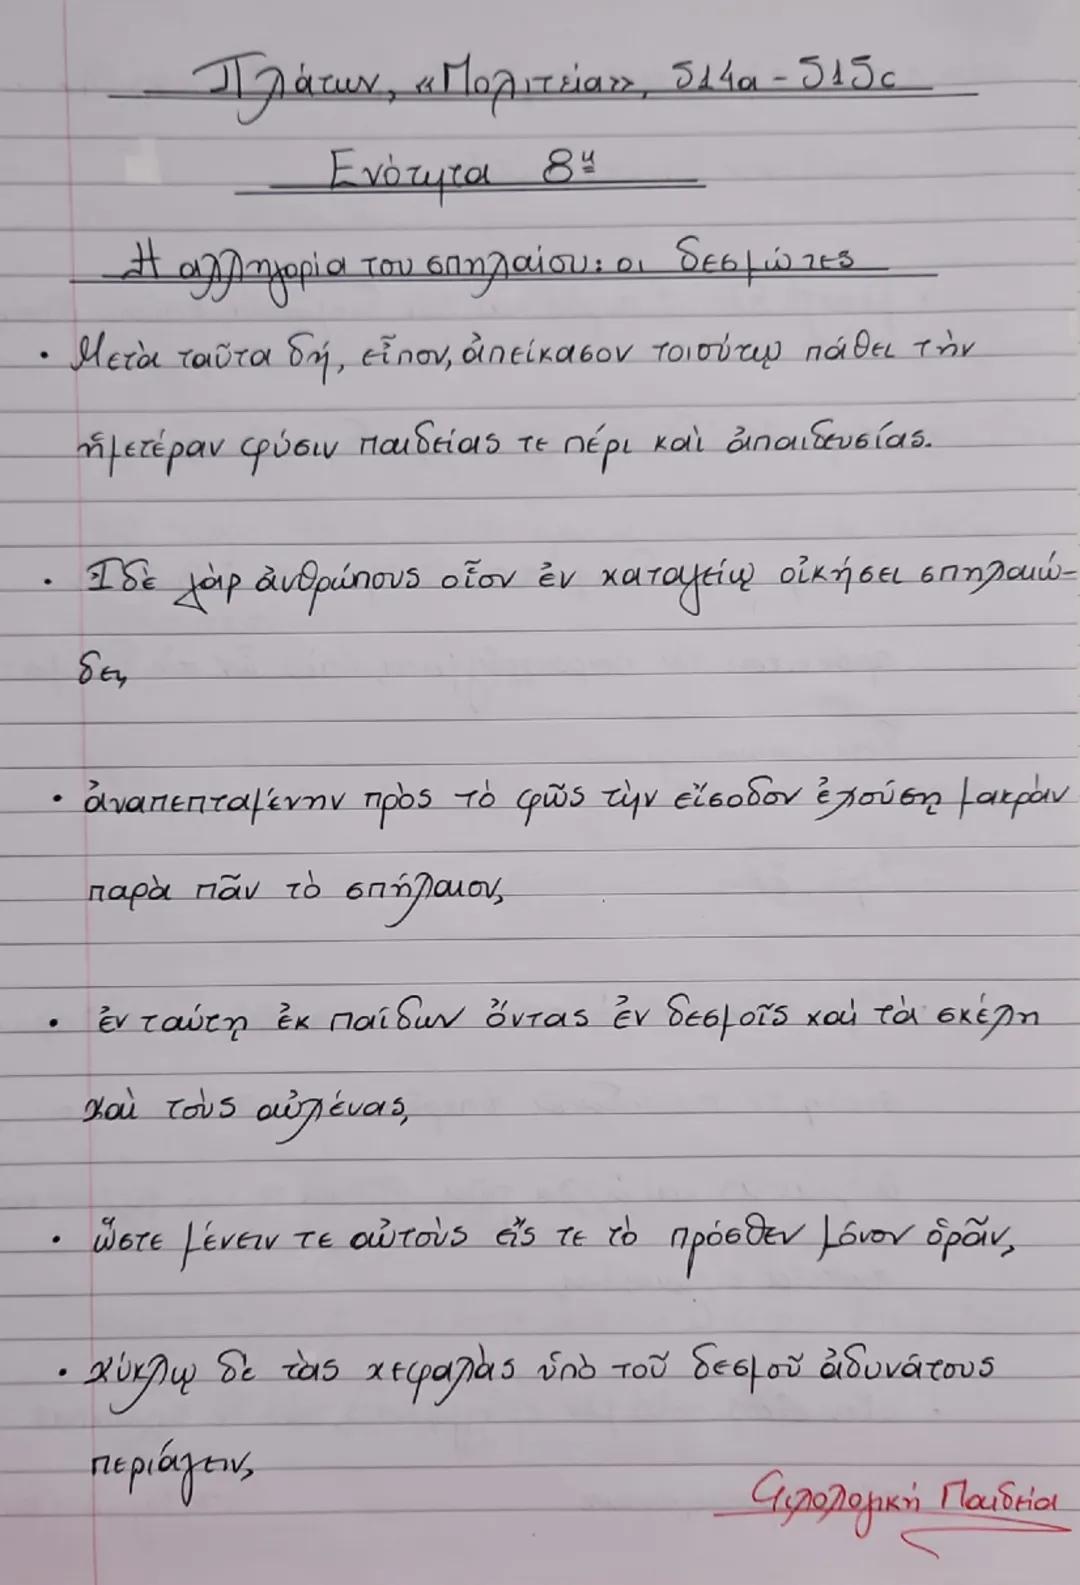 Πλάτων, «Πολιτεία», 514a - 515c
Ενότητα 8η
Η αλληγορία του σπηλαίου: οι δεσμώτες
• Μετὰ ταῦτα δή, εἶπον, ἀπείκασον τοιούτῳ πάθει τὴν
ἡμετέραν φύσιν παιδείας τε πέρι καὶ ἀπαιδευσίας.
• Ἰδὲ γὰρ ἀνθρώπους οἷον ἐν καταγείῳ οἰκήσει σπηλαιώ-
δει,
• ἀναπεπταμένην πρὸς τὸ φῶς τὴν εἴσοδον ἐχούσῃ μακρὰν
παρὰ πᾶν τὸ σπήλαιον,
• ἐν ταύτῃ ἐκ παίδων ὄντας ἐν δεσμοῖς καὶ τὰ σκέλη
καὶ τοὺς αὐχένας,
• ὥστε μένειν τε αὐτοὺς εἴς τε τὸ πρόσθεν μόνον ὁρᾶν,
• κύκλῳ δὲ τὰς κεφαλὰς ὑπὸ τοῦ δεσμοῦ ἀδυνάτους
περιάγειν,
Φιλολογική Παιδεία